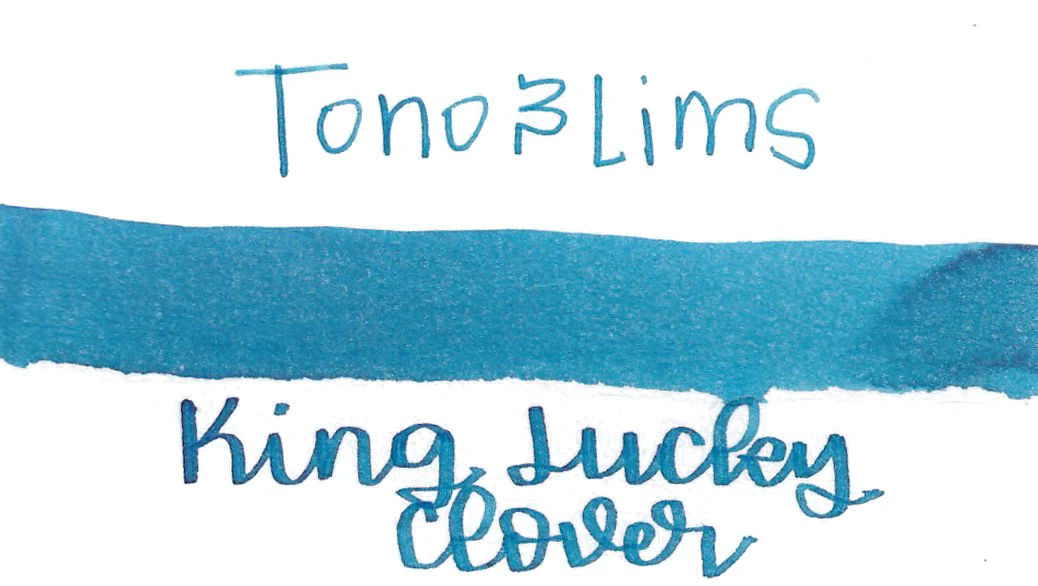 Tono & Lims
King Lucky
Clover